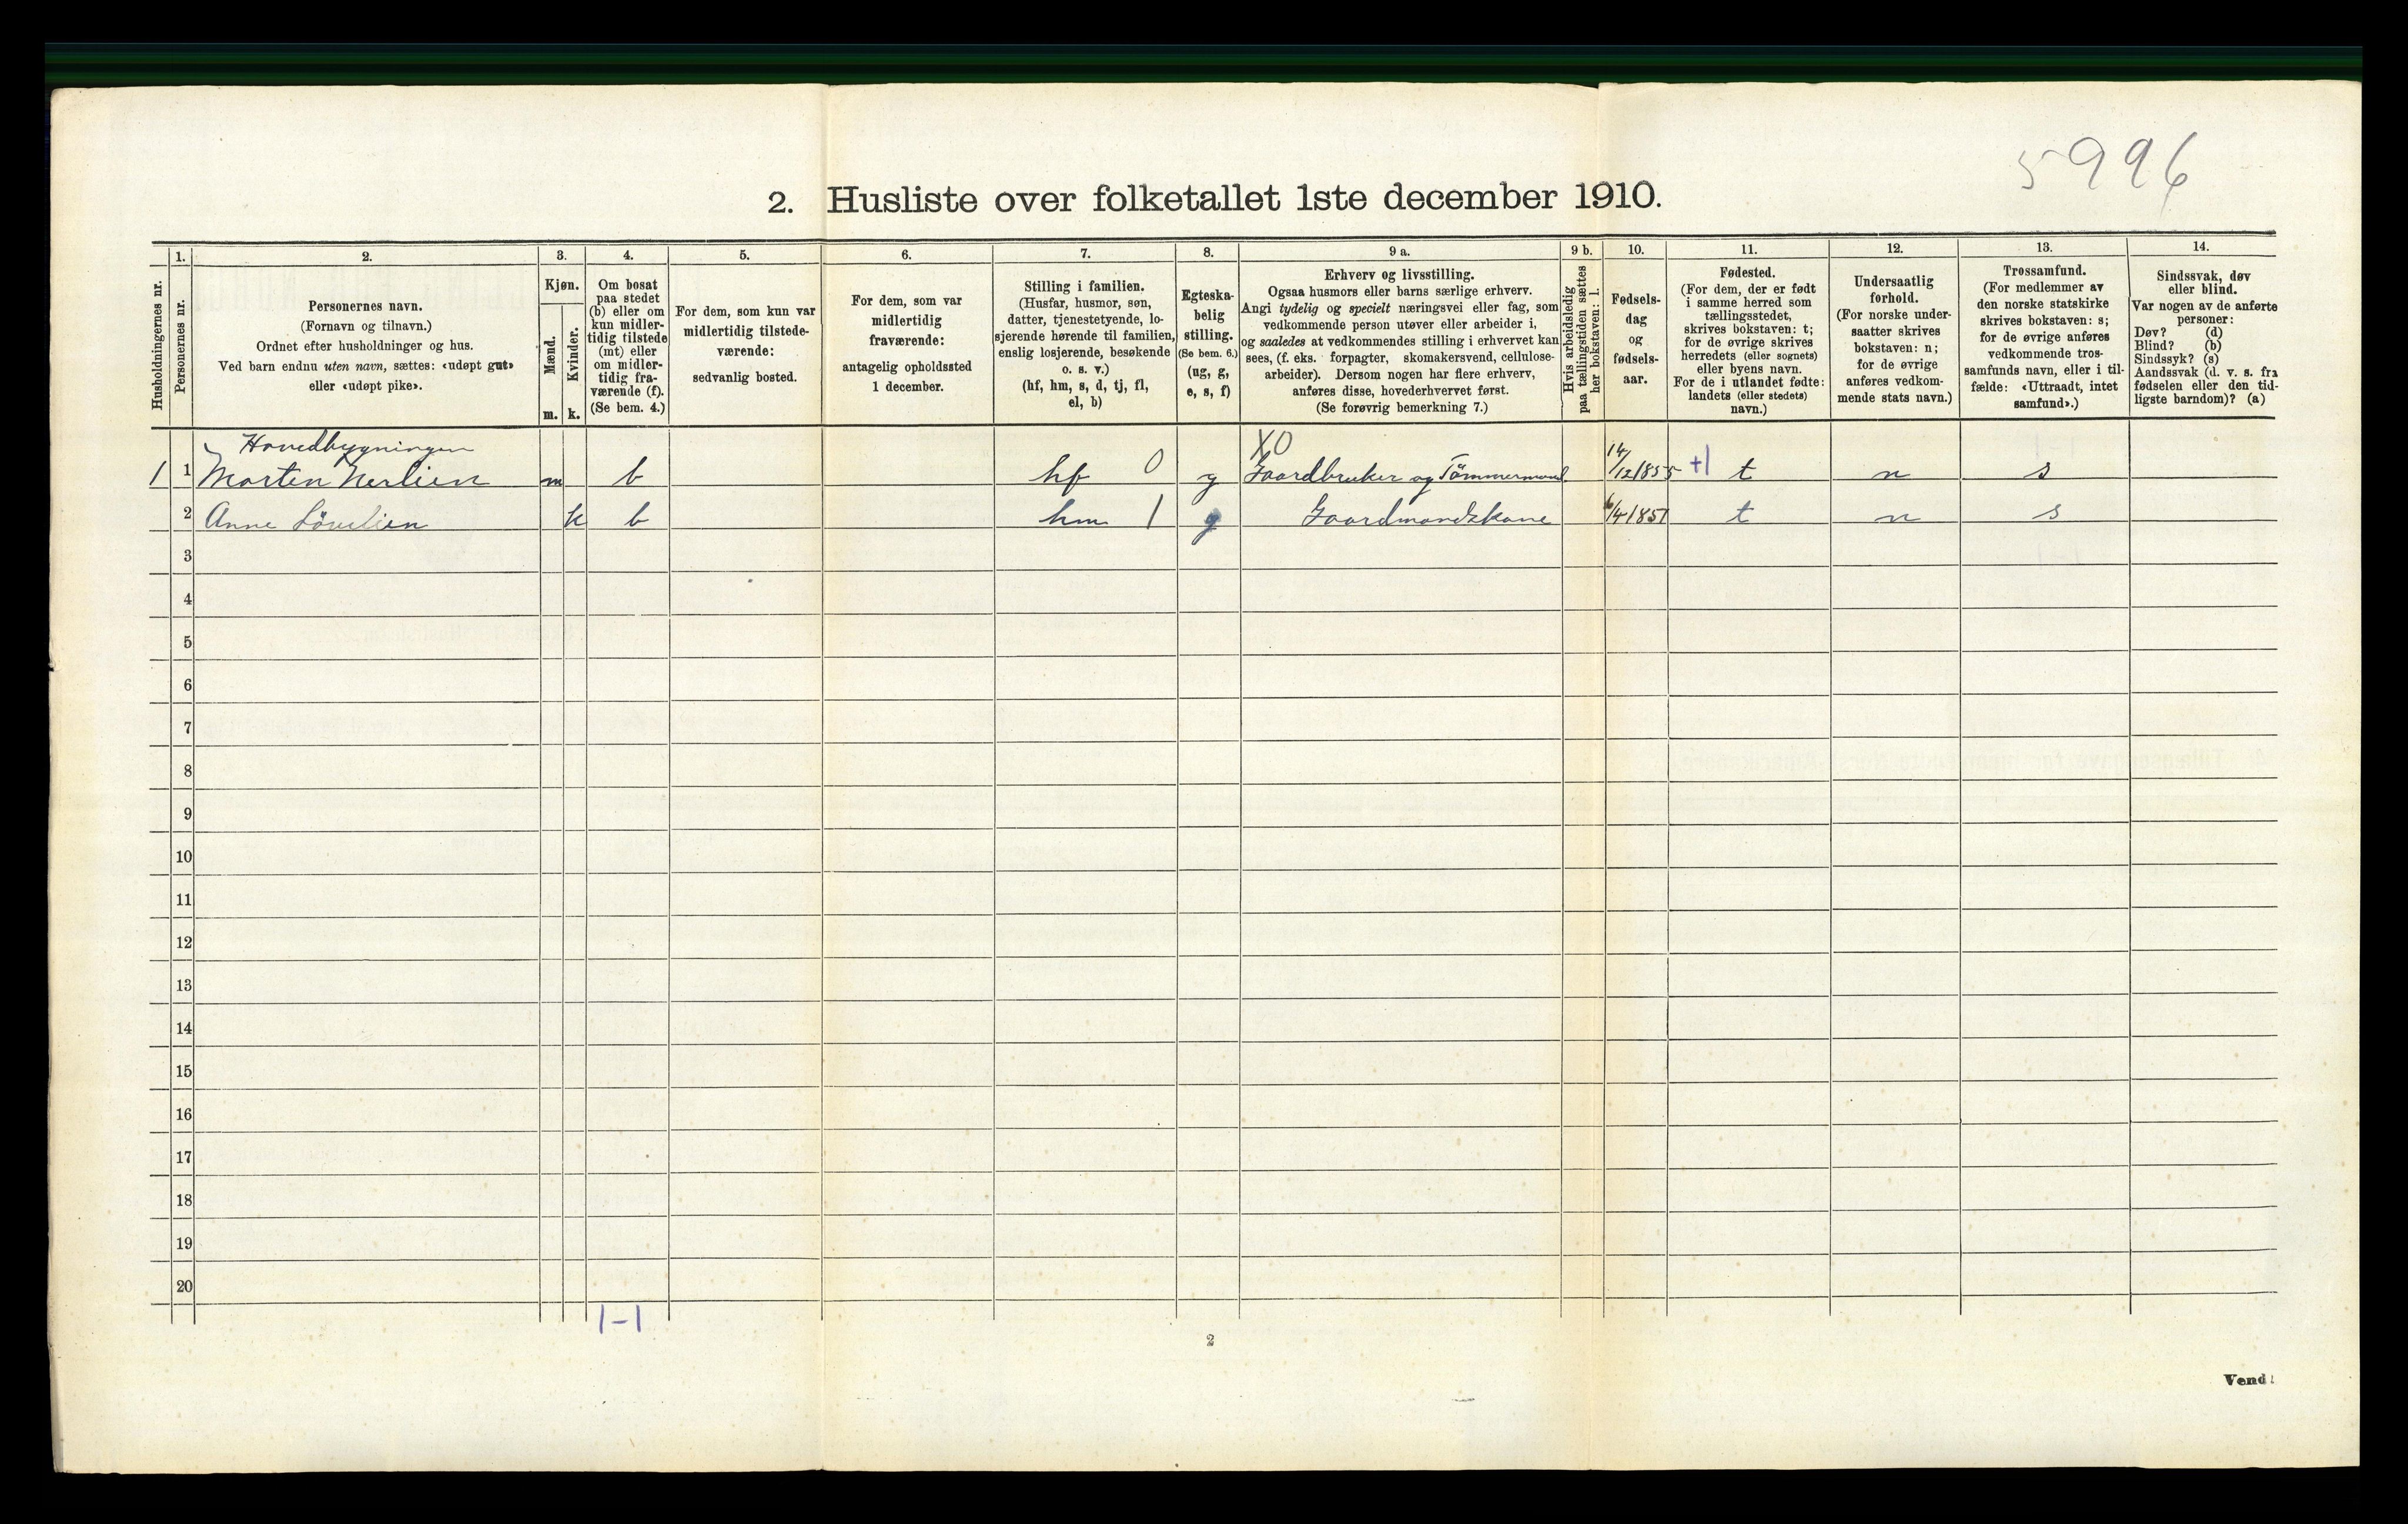 5996
2. Husliste over folketallet 1ste december 1910.
Husholdningernes nr.
1.
Personernes nr.
2.
Personernes navn.
(Fornavn og tilnavn.)
Ordnet efter husholdninger og hus.
Ved barn endnu uten navn, sættes: «udøpt gut»
eller «udøpt pike».
3.
Kjøn.
Mænd.
Kvinder.
m. k.
4.
Om bosat
paa stedet
(b) eller om
kun midler-
tidig tilstede
(mt) eller
om midler-
tidig fra-
værende (f).
(Se bem. 4.)
5.
For dem, som kun var
midlertidig tilstede-
værende:
sedvanlig bosted.
6.
For dem, som var
midlertidig
fraværende:
antagelig opholdssted
1 december.
7.
Stilling i familien.
(Husfar, husmor, søn,
datter, tjenestetyende, lo-
sjerende hørende til familien,
enslig losjerende, besøkende
o. s. v.)
(hf, hm, s, d, tj, fl,
el, b)
8.
Egteska-
belig
stilling.
(Se bem. 6.)
(ug, g,
e, s, f)
9 a.
Erhverv og livsstilling.
Ogsaa husmors eller barns særlige erhverv.
Angi tydelig og specielt næringsvei eller fag, som
vedkommende person utøver eller arbeider i,
og saaledes at vedkommendes stilling i erhvervet kan
sees, (f. eks. forpagter, skomakersvend, cellulose-
arbeider). Dersom nogen har flere erhverv,
anføres disse, hovederhvervet først.
(Se forøvrig bemerkning 7.)
9 b.
Hvis arbeidsledig
paa tællingstiden sættes
her bokstaven: l.
10.
Fødsels-
dag
og
fødsels-
aar.
11.
Fødested.
(For dem, der er født
i samme herred som
tællingsstedet,
skrives bokstaven: t;
for de øvrige skrives
herredets (eller sognets)
eller byens navn.
For de i utlandet fødte:
landets (eller stedets)
navn.)
12.
Undersaatlig
forhold.
(For norske under-
saatter skrives
bokstaven: n;
for de øvrige
anføres vedkom-
mende stats navn.)
13.
Trossamfund.
(For medlemmer av
den norske statskirke
skrives bokstaven: s;
for de øvrige anføres
vedkommende tros-
samfunds navn, eller i til-
fælde: «Uttraadt, intet
samfund».)
14.
Sindssvak, døv
eller blind.
Var nogen av de anførte
personer:
Døv? (d)
Blind? (b)
Sindssyk? (s)
Aandssvak (d. v. s. fra
fødselen eller den tid-
ligste barndom)? (a)
Hovedbygningen X0
1 1 Morten Nerlien m b hf 0 g Gaardbruker og Tömmermand. 14/12 1855 +1 t n s
2 Anne Lövelien k b hm 1 g Gaardmandskone 6/4 1851 t n s
3
4
5
6
7
8
9
10
11
12
13
14
15
16
17
18
19
20
1-1
2
Vend!